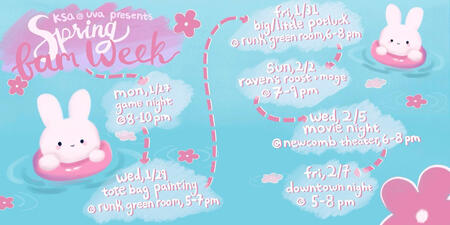 KSA @ UVA presents
Spring
fam Week
mon, 1/27
game night
@ 8-10 pm
Wed, 1/29
tote bag painting
@ runk green room, 5-7 pm
fri, 1/31
big/little potluck
@ runk green room, 6-8 pm
Sun, 2/2
raven's roost + moge
@ 7-9 pm
Wed, 2/5
movie night
@ newcomb theater, 6-8 pm
fri, 2/7
downtown night
@ 5-8 pm